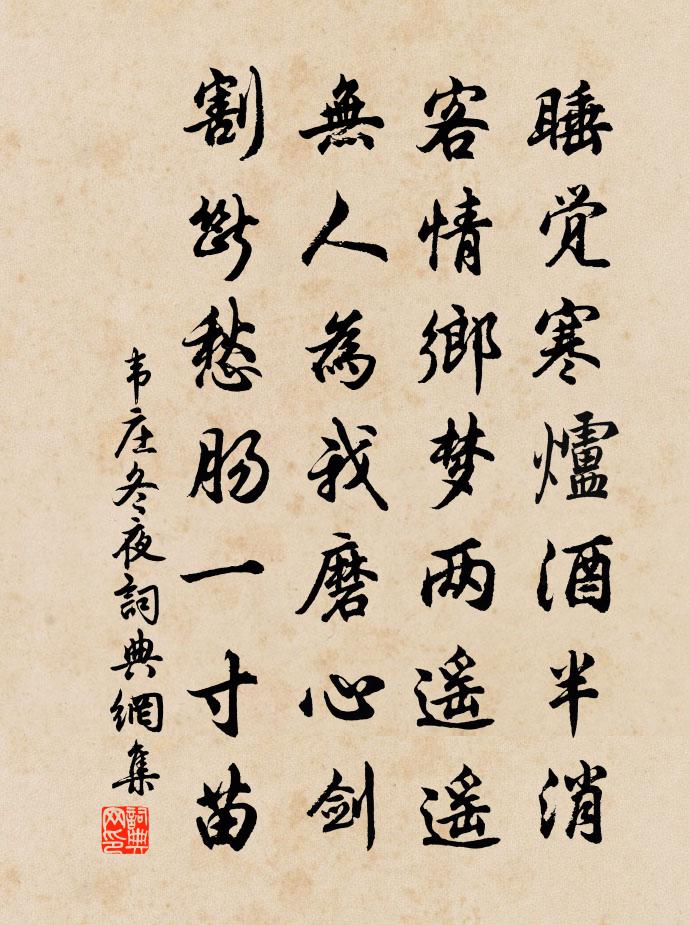 睡觉寒爐酒半消
客情鄉梦两遥遥
無人為我磨心剑
割斷愁肠一寸苗
韦庄冬夜詞典網集
詞典网印